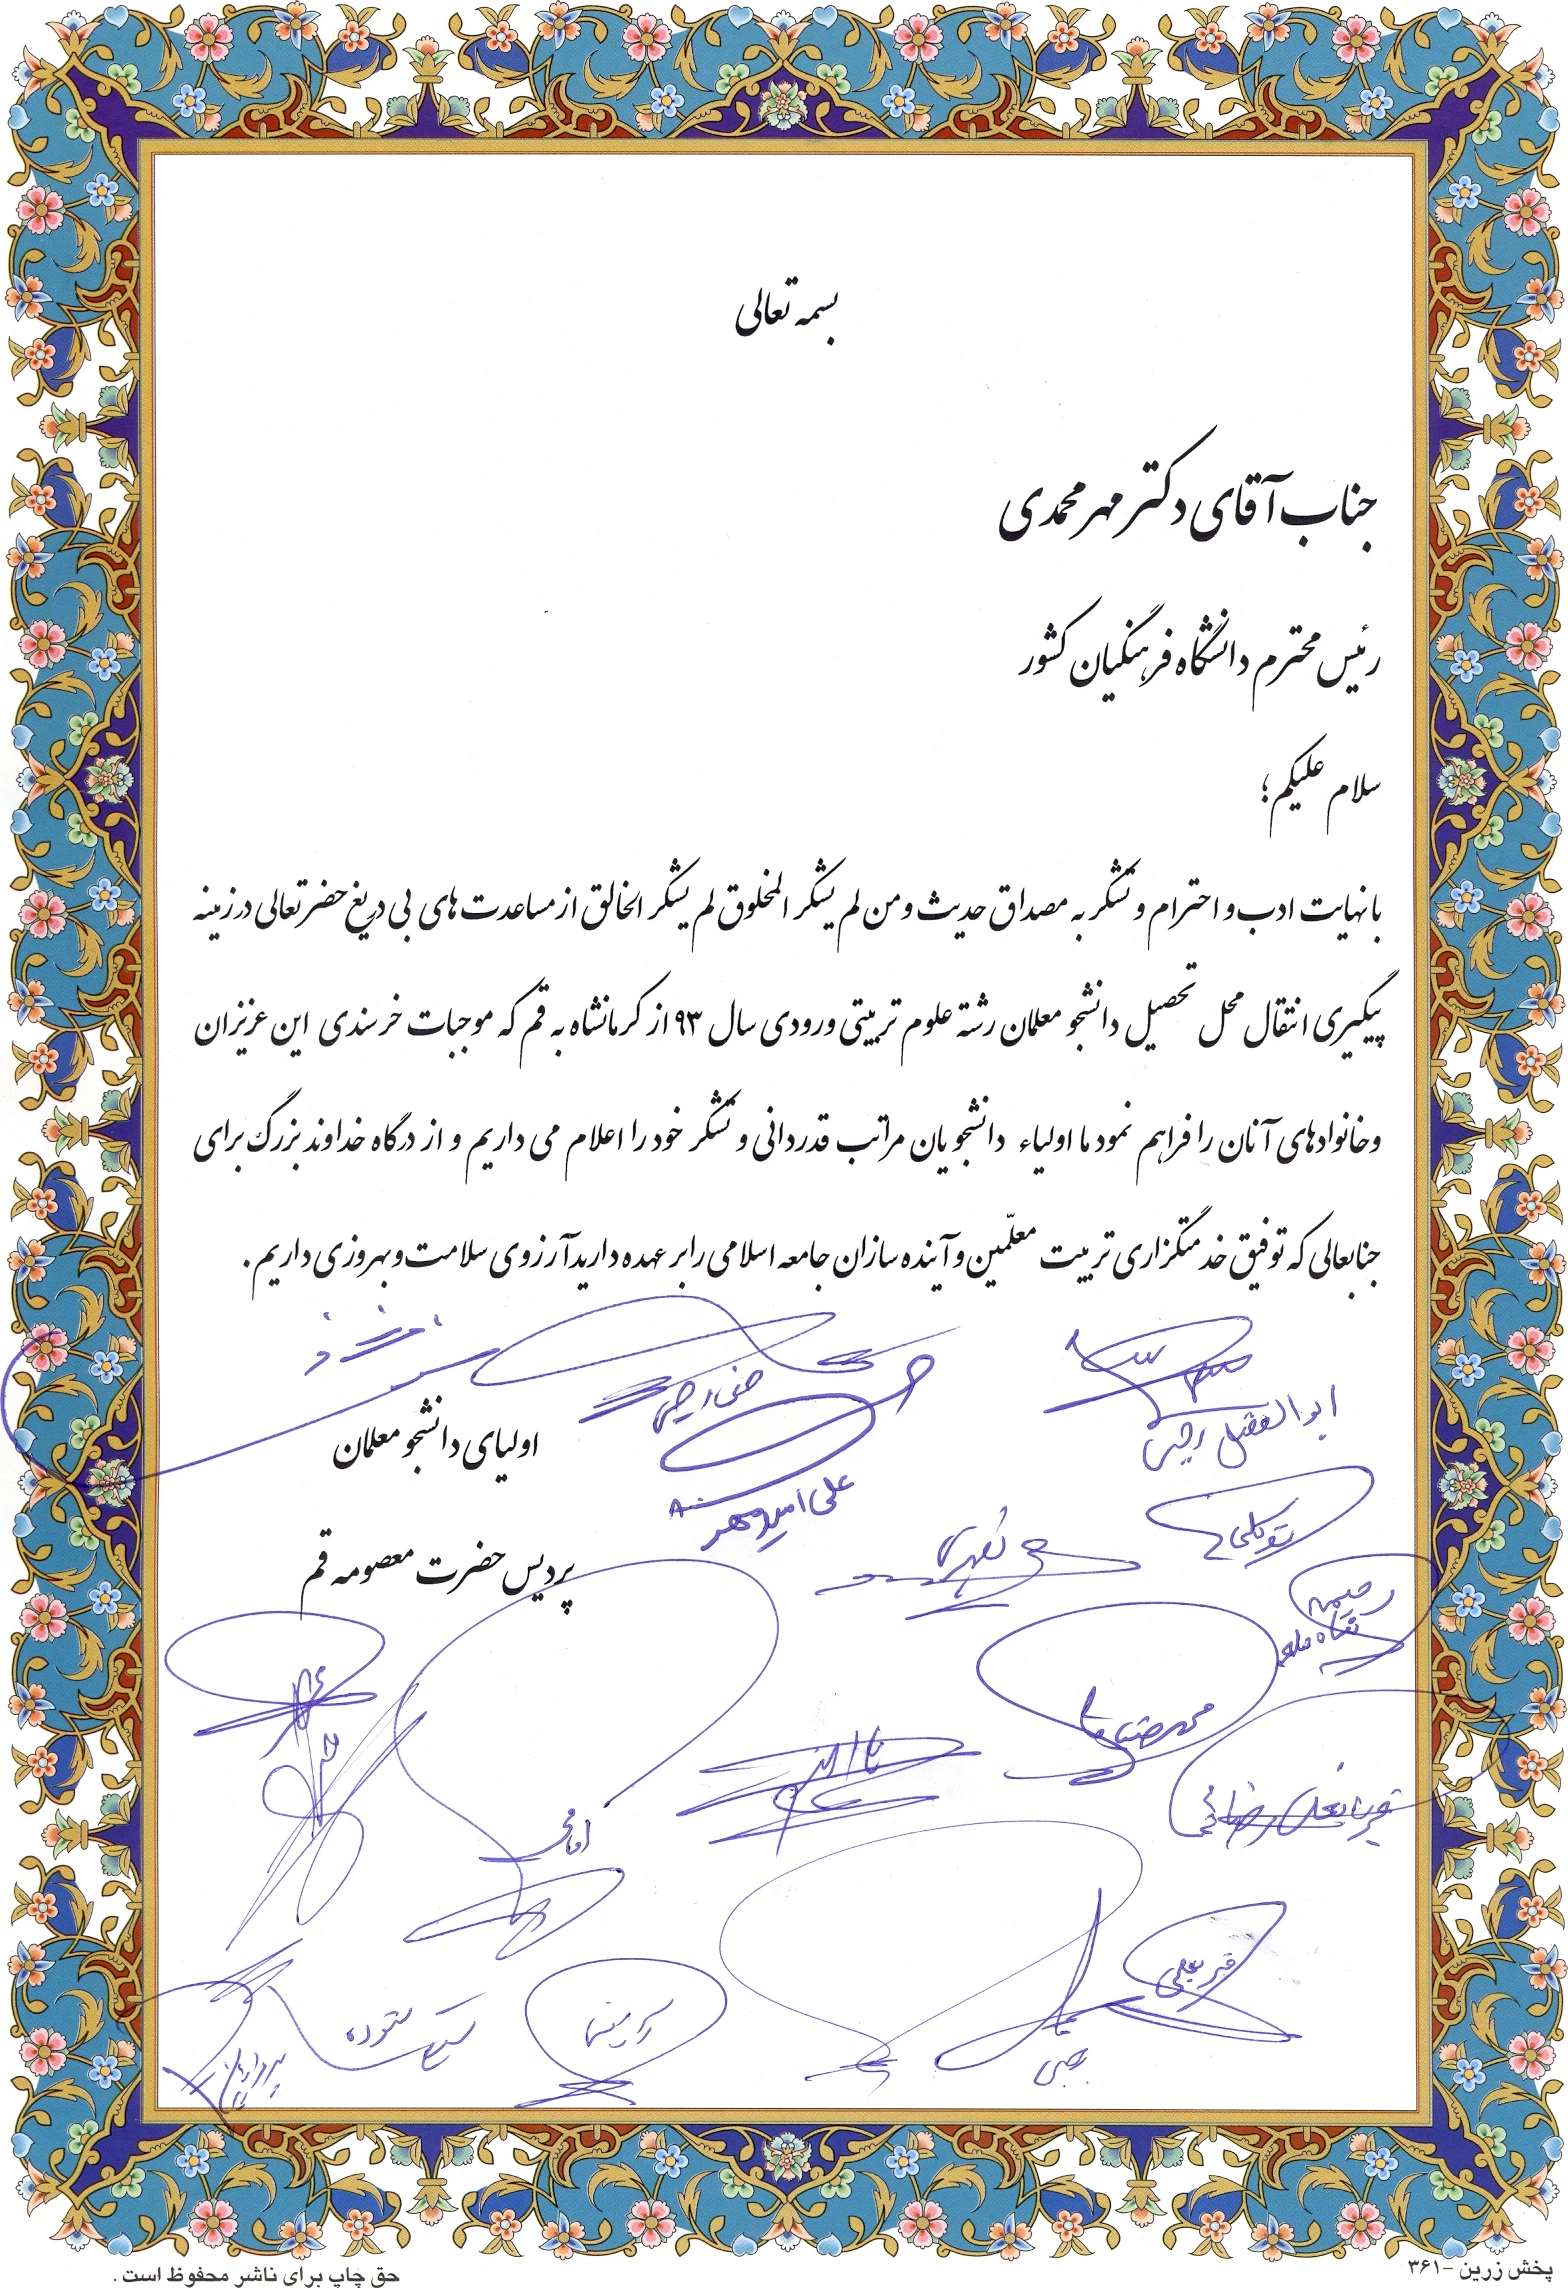 بسمه تعالی
جناب آقای دکتر مهر محمدی
رئیس محترم دانشگاه فرهنگیان کشور
سلام علیکم؛
با نهایت ادب و احترام و تشکر به مصداق حدیث و من لم یشکر المخلوق لم یشکر الخالق از مساعدت های بی دریغ حضرتعالی در زمینه
پیگیری انتقال محل تحصیل دانشجو معلمان رشته علوم تربیتی ورودی سال ۹۳ از کرمانشاه به قم که موجبات خرسندی این عزیزان
و خانوادهای آنان را فراهم نمود ما اولیاء دانشجویان مراتب قدردانی و تشکر خود را اعلام می داریم و از درگاه خداوند بزرگ برای
جنابعالی که توفیق خدمتگزاری تربیت معلّمین و آینده سازان جامعه اسلامی را بر عهده دارید آرزوی سلامت و بهروزی داریم.
اولیای دانشجو معلمان
ابوالفضل رجبی
توکلی
پردیس حضرت معصومه قم
محمد رضا
قربانعلی رضائی
امامی
قربعلی
ستوده
رجبی
پخش زرین -۳۶۱
حق چاپ برای ناشر محفوظ است .